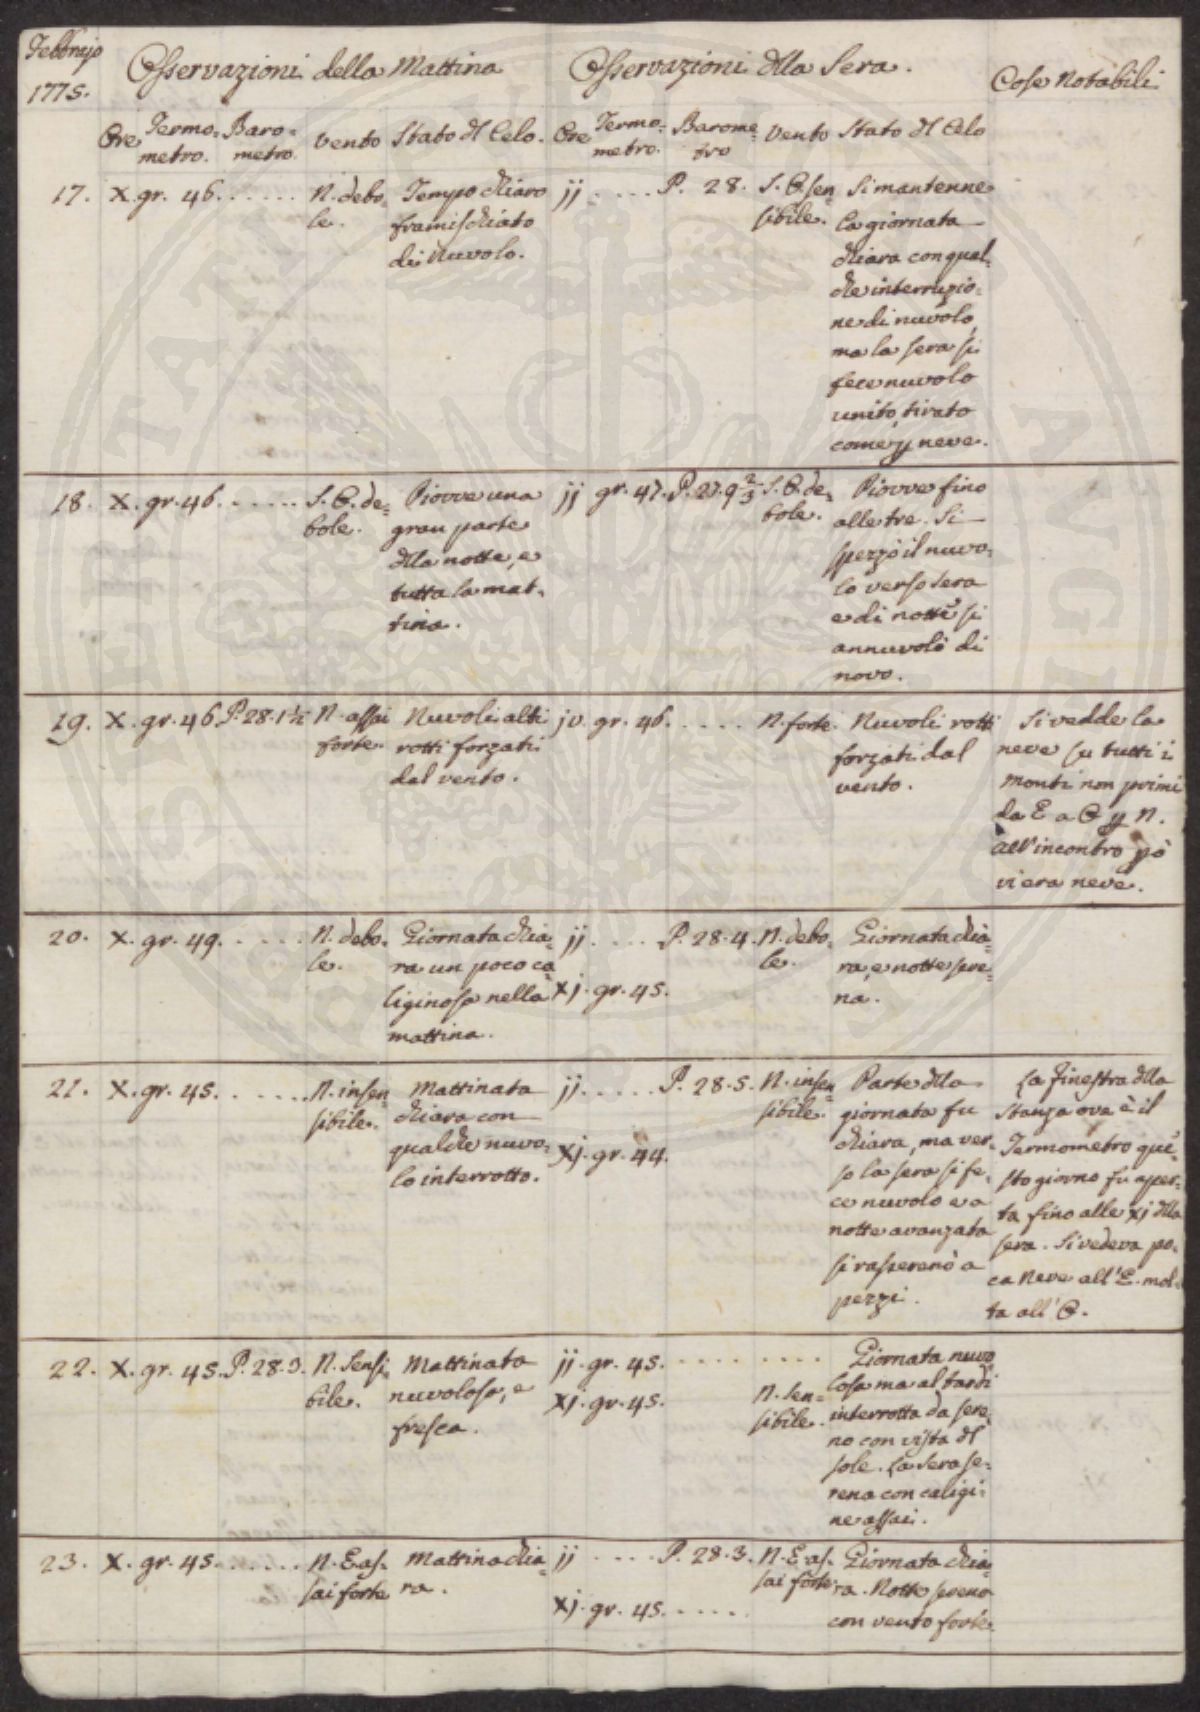 Febbrajo
1775.
Osservazioni della Mattina
Osservazioni dlla Sera.
Cose Notabili
Ore Termo=metro. Baro=metro. Vento Stato dl Celo.
Ore Termo=metro. Barome=tro Vento Stato dl Celo
17. X. gr. 46. . . . . . .
N. debo=
le.
Tempo chiaro
framischiato
di Nuvolo.
jj . . . . . P. 28.
S. O. sen
sibile.
Si mantenne
la giornata
chiara con qual=
che interruzio=
ne di nuvolo,
ma la sera si
fece nuvolo
unito, tirato
come p neve.
18. X. gr. 46. . . . . . .
S. O. de=
bole.
Piovve una
gran parte
dlla notte, e
tutta la mat=
tina.
jj gr. 47. P. 27. 9 2/3
S. O. de=
bole.
Piovve fino
alle tre. Si
spezzò il nuvo=
lo verso sera
e di notte si
annuvolò di
novo.
19. X. gr. 46. P. 28. 1 1/2
N. assai
forte.
Nuvoli alti
rotti forzati
dal vento.
jv. gr. 46. . . . . .
N. forte.
Nuvoli rotti
forzati dal
vento.
Si vedde la
neve su tutti i
Monti non primi
da E a O p N.
all'incontro pò
vi era neve.
20. X. gr. 49. . . . . .
N. debo=
le.
Giornata chia=
ra un poco ca=
liginosa nella
mattina.
jj . . . . P. 28. 4.
xj. gr. 45.
N. debo=
le.
Giornata chia=
ra, e notte sere=
na.
21. X. gr. 45. . . . . . .
N. insen
sibile.
Mattinata
chiara con
qualche nuvo=
lo interrotto.
jj . . . . . P. 28. 5.
xj. gr. 44.
N. insen
sibile.
Parte dlla
giornata fu
chiara, ma ver=
so la sera si fe=
ce nuvolo e a
notte avanzata
si rasserenò a
pezzi.
La finestra dlla
Stanza ove è il
Termometro que=
sto giorno fu aper=
ta fino alle xj dlla
sera. Si vedeva po=
ca Neve all'E. mol=
ta all'O.
22. X. gr. 45. P. 28. 3.
N. Sensi
bile.
Mattinata
nuvolosa, e
fresca.
jj. gr. 45. . . . . . . . .
xj. gr. 45.
N. sen=
sibile.
Giornata nuvo
losa ma al tardi
interrotta da sere
no con vista dl
sole. La sera se=
rena con caligi=
ne assai.
23. X. gr. 45. . . . . . .
N. E as=
sai forte
Mattina chia=
ra.
jj . . . . P. 28. 3.
xj. gr. 45. . . . . .
N. E as=
sai forte
Giornata chia=
ra. Notte serena
con vento forte.